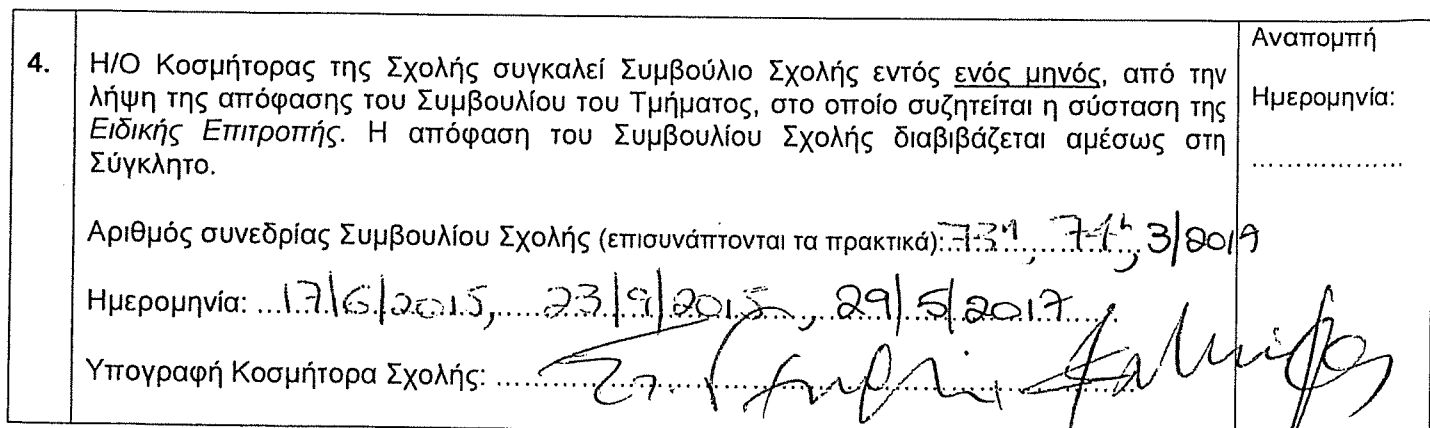 4.
Η/Ο Κοσμήτορας της Σχολής συγκαλεί Συμβούλιο Σχολής εντός ενός μηνός, από την
λήψη της απόφασης του Συμβουλίου του Τμήματος, στο οποίο συζητείται η σύσταση της
Ειδικής Επιτροπής. Η απόφαση του Συμβουλίου Σχολής διαβιβάζεται αμέσως στη
Σύγκλητο.
Αριθμός συνεδρίας Συμβουλίου Σχολής (επισυνάπτονται τα πρακτικά): 73η, 74η, 3/2019
Ημερομηνία: ...17/6/2015, 23/9/2015, 29/5/2017
Υπογραφή Κοσμήτορα Σχολής: ...
Αναπομπή
Ημερομηνία:
..................